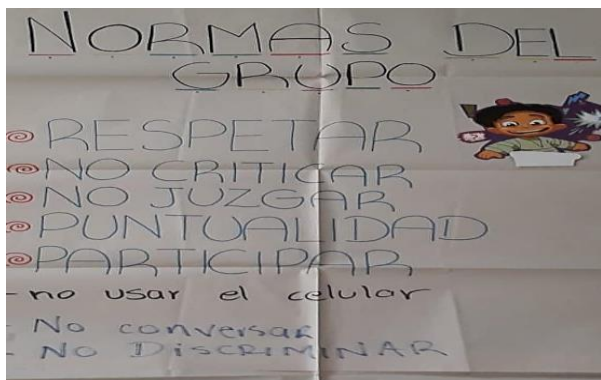 NORMAS DEL
GRUPO
RESPETAR
NO CRITICAR
NO JUZGAR
PUNTUALIDAD
PARTICIPAR
- no usar el celular
- No conversar
- No DISCRIMINAR